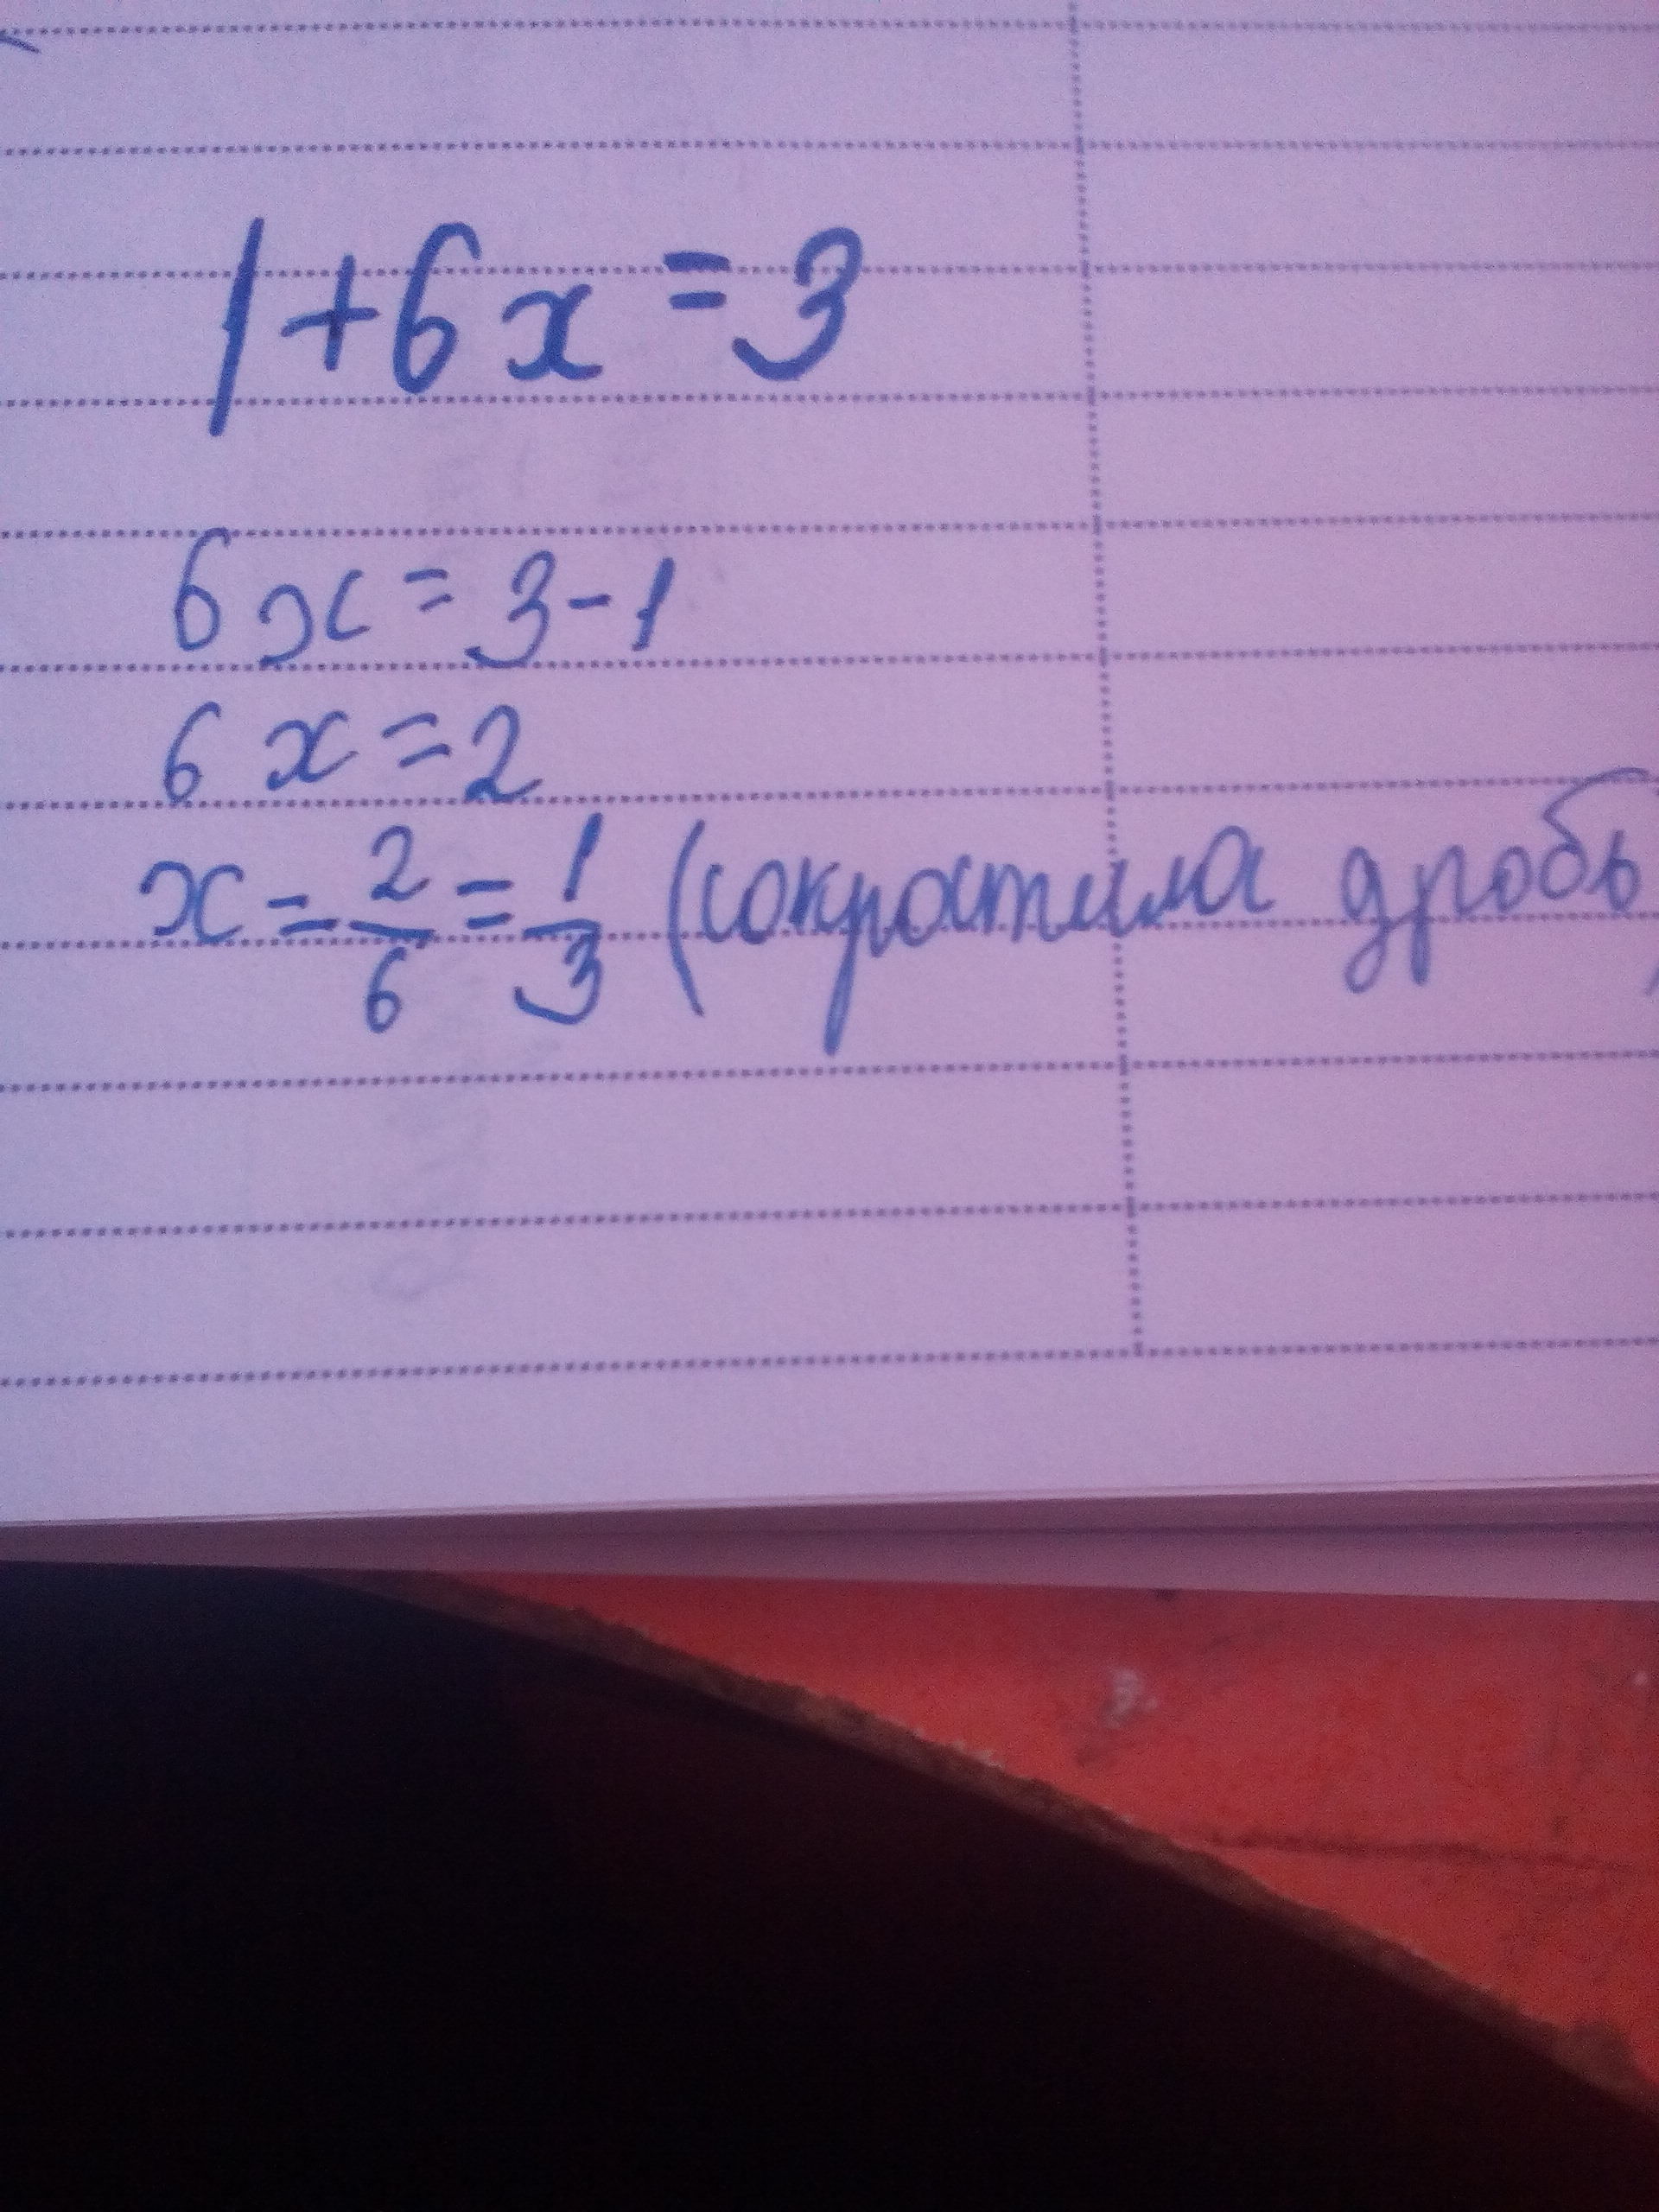 1+6x=3
6x=3-1
6x=2
x=2/6=1/3 (сократила дробь)